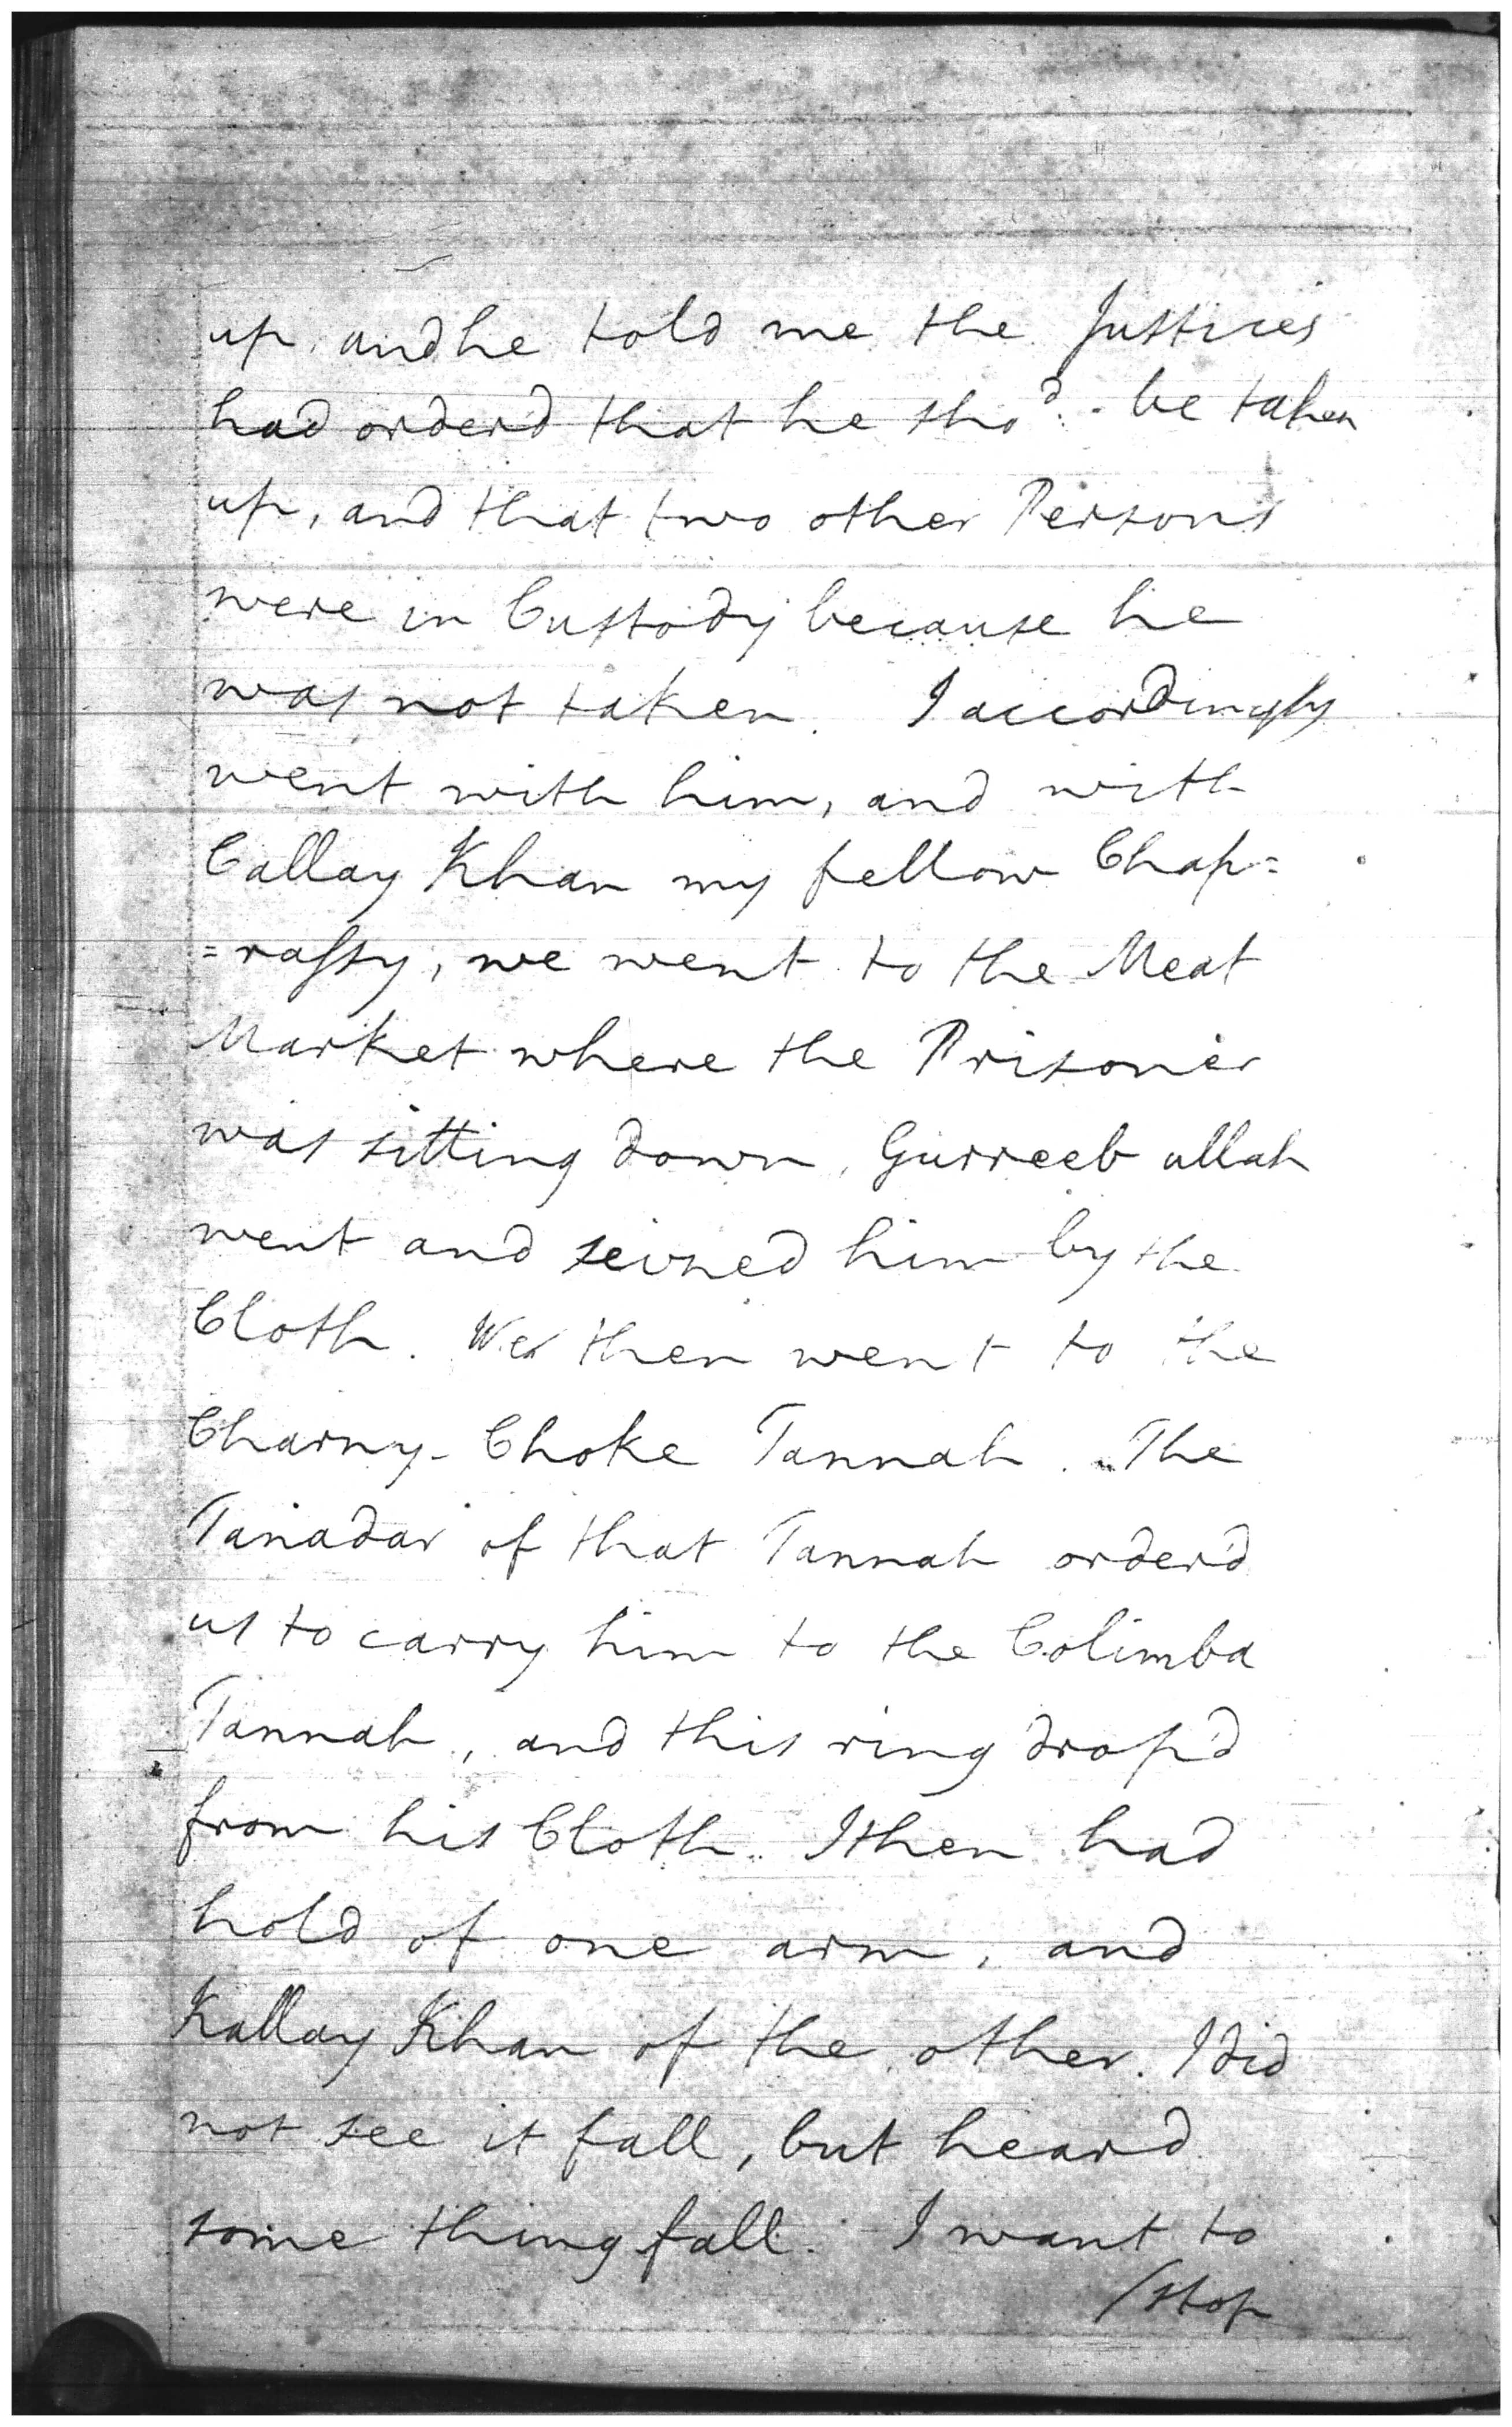 up, and he told me the Justices
had order'd that he sho.d be taken
up, and that two other Persons
were in Custody because he
was not taken. I accordingly
went with him, and with
Callay Khan my fellow Chap=
=rassy, we went to the Meat
Market where the Prisoner
was sitting down, Gurreeb ullah
went and seized him by the
Cloth. We then went to the
Charny-Choke Tannah. The
Tanadar of that Tannah order'd
us to carry him to the Colimba
Tannah, and this ring drop'd
from his Cloth. I then had
hold of one arm, and
Kallay Khan of the other. I did
not see it fall, but heard
some thing fall. I want to
/stop